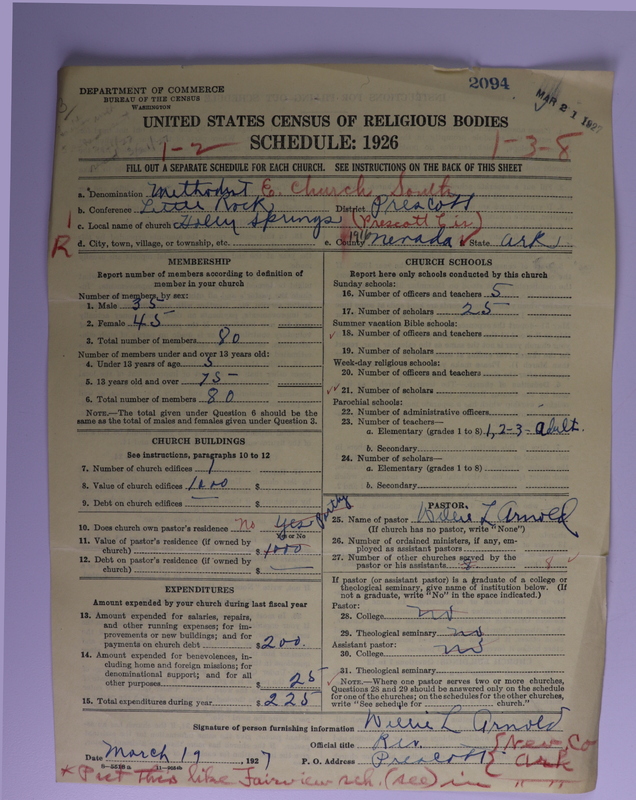 2094
MAR 21 1927
DEPARTMENT OF COMMERCE
BUREAU OF THE CENSUS
WASHINGTON
UNITED STATES CENSUS OF RELIGIOUS BODIES
SCHEDULE: 1926
1-2
1-3-8
FILL OUT A SEPARATE SCHEDULE FOR EACH CHURCH. SEE INSTRUCTIONS ON THE BACK OF THIS SHEET
a. Denomination Methodist E. Church, South
b. Conference Little Rock District Prescott
c. Local name of church Holly Springs (Prescott Cir.)
R d. City, town, village, or township, etc. e. County Nevada State Ark
MEMBERSHIP
Report number of members according to definition of member in your church
Number of members, by sex:
1. Male 35
2. Female 45
3. Total number of members 80
Number of members under and over 13 years old:
4. Under 13 years of age 5
5. 13 years old and over 75
6. Total number of members 80
NOTE.—The total given under Question 6 should be the
same as the total of males and females given under Question 3.
CHURCH BUILDINGS
See instructions, paragraphs 10 to 12
7. Number of church edifices 1
8. Value of church edifices 1000 $
9. Debt on church edifices — $
10. Does church own pastor's residence No Yes Partly
Yes or No
11. Value of pastor's residence (if owned by
church) $1000
12. Debt on pastor's residence (if owned by
church) $ —
EXPENDITURES
Amount expended by your church during last fiscal year
13. Amount expended for salaries, repairs,
and other running expenses; for im-
provements or new buildings; and for
payments on church debt $200.
14. Amount expended for benevolences, in-
cluding home and foreign missions; for
denominational support; and for all
other purposes $ 25
15. Total expenditures during year $ 225
CHURCH SCHOOLS
Report here only schools conducted by this church
Sunday schools:
16. Number of officers and teachers 5
17. Number of scholars 25
Summer vacation Bible schools:
18. Number of officers and teachers
19. Number of scholars
Week-day religious schools:
20. Number of officers and teachers
21. Number of scholars
Parochial schools:
22. Number of administrative officers
23. Number of teachers—
a. Elementary (grades 1 to 8) 1, 2-3- adult.
b. Secondary
24. Number of scholars—
a. Elementary (grades 1 to 8)
b. Secondary
PASTOR
25. Name of pastor Willie L Arnold
(If church has no pastor, write "None")
26. Number of ordained ministers, if any, em-
ployed as assistant pastors
27. Number of other churches served by the
pastor or his assistants
If pastor (or assistant pastor) is a graduate of a college or
theological seminary, give name of institution below. (If
not a graduate, write "No" in the space indicated.)
Pastor:
28. College no
29. Theological seminary no
Assistant pastor:
30. College no
31. Theological seminary
NOTE.—Where one pastor serves two or more churches,
Questions 28 and 29 should be answered only on the schedule
for one of the churches; on the schedules for the other churches,
write "See schedule for church."
Signature of person furnishing information Willie L Arnold
Official title Rev.
Date March 19, 1927 P. O. Address Prescott { Nev. Co Ark
* Put this like Fairview sch. (see) in " "